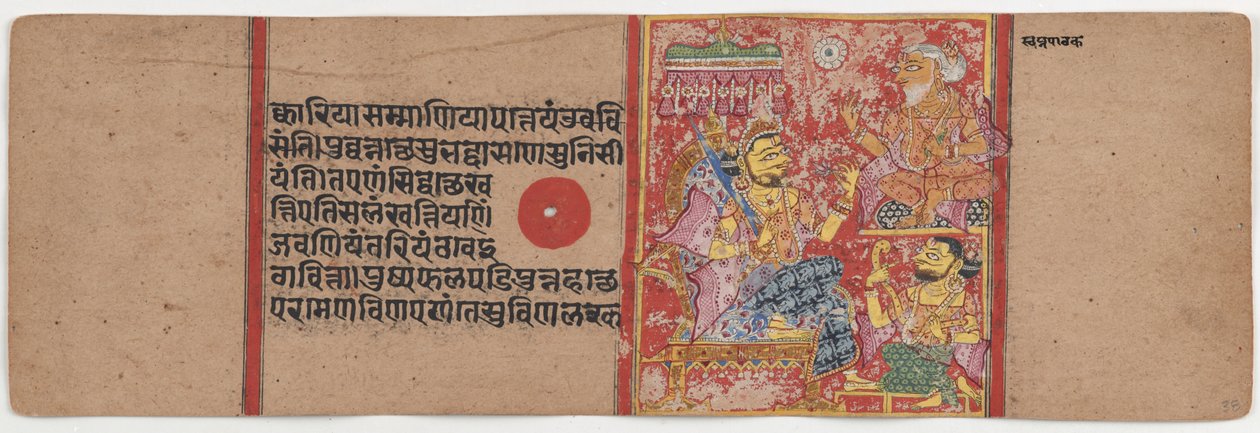 क्कारियासम्माणियापत्तेयंउववि
संति।पुव्वन्नत्थेसुभद्दासणेसुनिसी
यंति।तएणंसिद्धत्थेख
त्तिएतिसलंखत्तियाणिं
जवणियंतरियंठावेइ
ठावित्ता।पुप्फफलपडिपुन्नहत्थे
परमेणंविणएणंतेसुविणलक्ख
स्वप्नपाठक